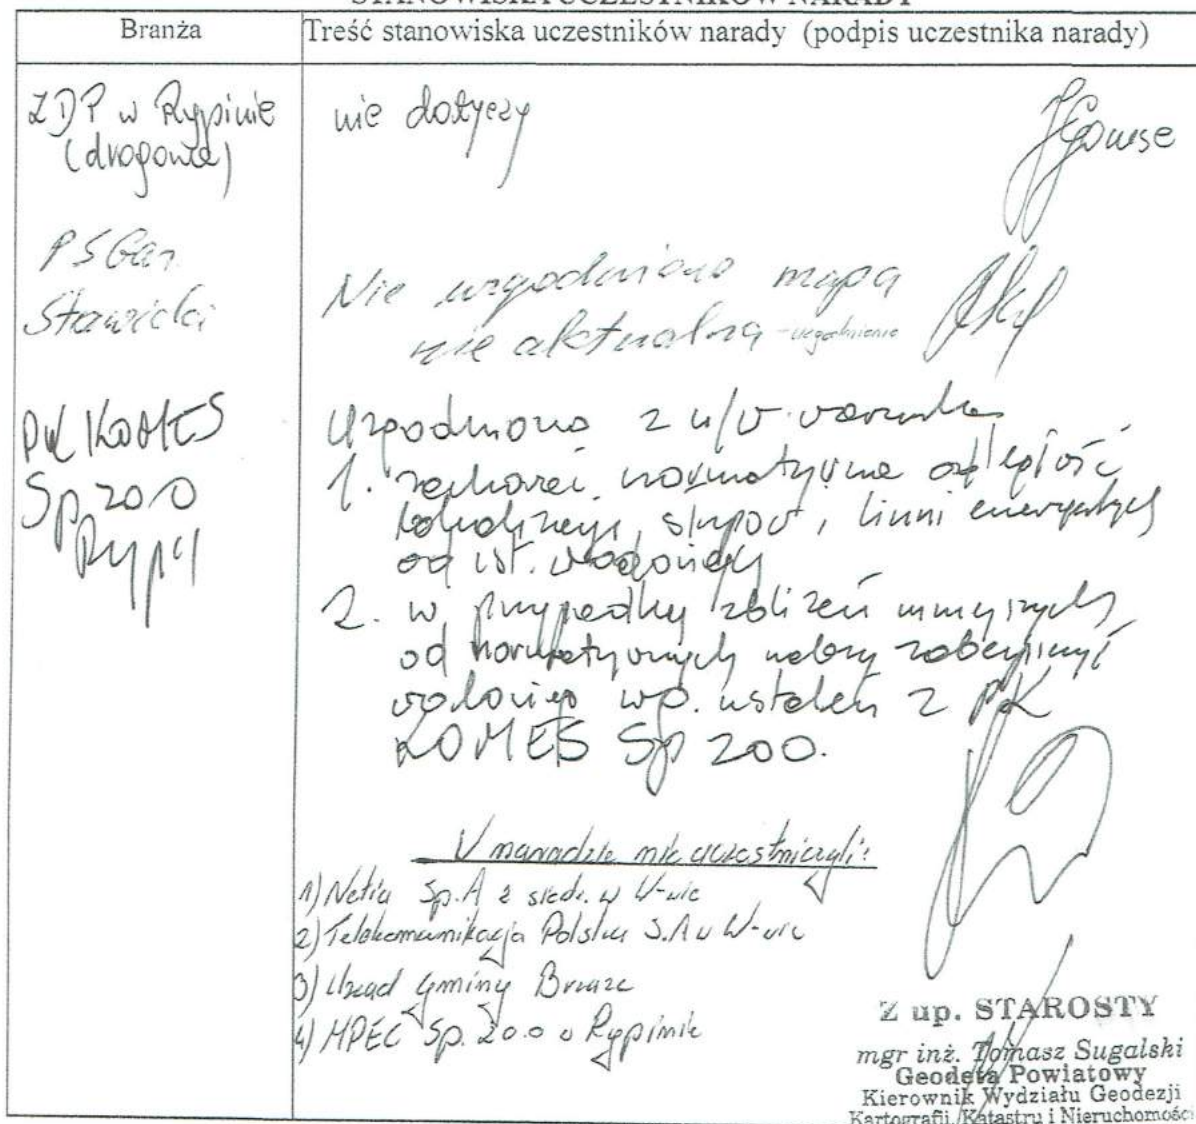 STANOWISKA UCZESTNIKÓW NARADY
Branża
Treść stanowiska uczestników narady (podpis uczestnika narady)
ZDP w Rypinie
(drogowa)
nie dotyczy
PSGaz
Stawicki
Nie uzgodniono mapa
nie aktualna - uzgodnienie
PK KOMES
Sp. z o.o
Rypin
Uzgodniono z n/w warunkami
1. zachować normatywne odległość
słupów, linni energetycznych
od ist. wodociągu
2. w przypadku zbliżeń mniejszych
od normatywnych należy zabezpieczyć
wodociąg wg. ustaleń z PK
KOMES Sp z o o.
W naradzie nie uczestniczyli:
1) Netia Sp.A z siedz. w W-wie
2) Telekomunikacja Polska S.A w W-wie
3) Urząd Gminy Brzuze
4) MPEC Sp. z o.o w Rypinie
Z up. STAROSTY
mgr inż. Tomasz Sugalski
Geodeta Powiatowy
Kierownik Wydziału Geodezji
Kartografii, Katastru i Nieruchomości